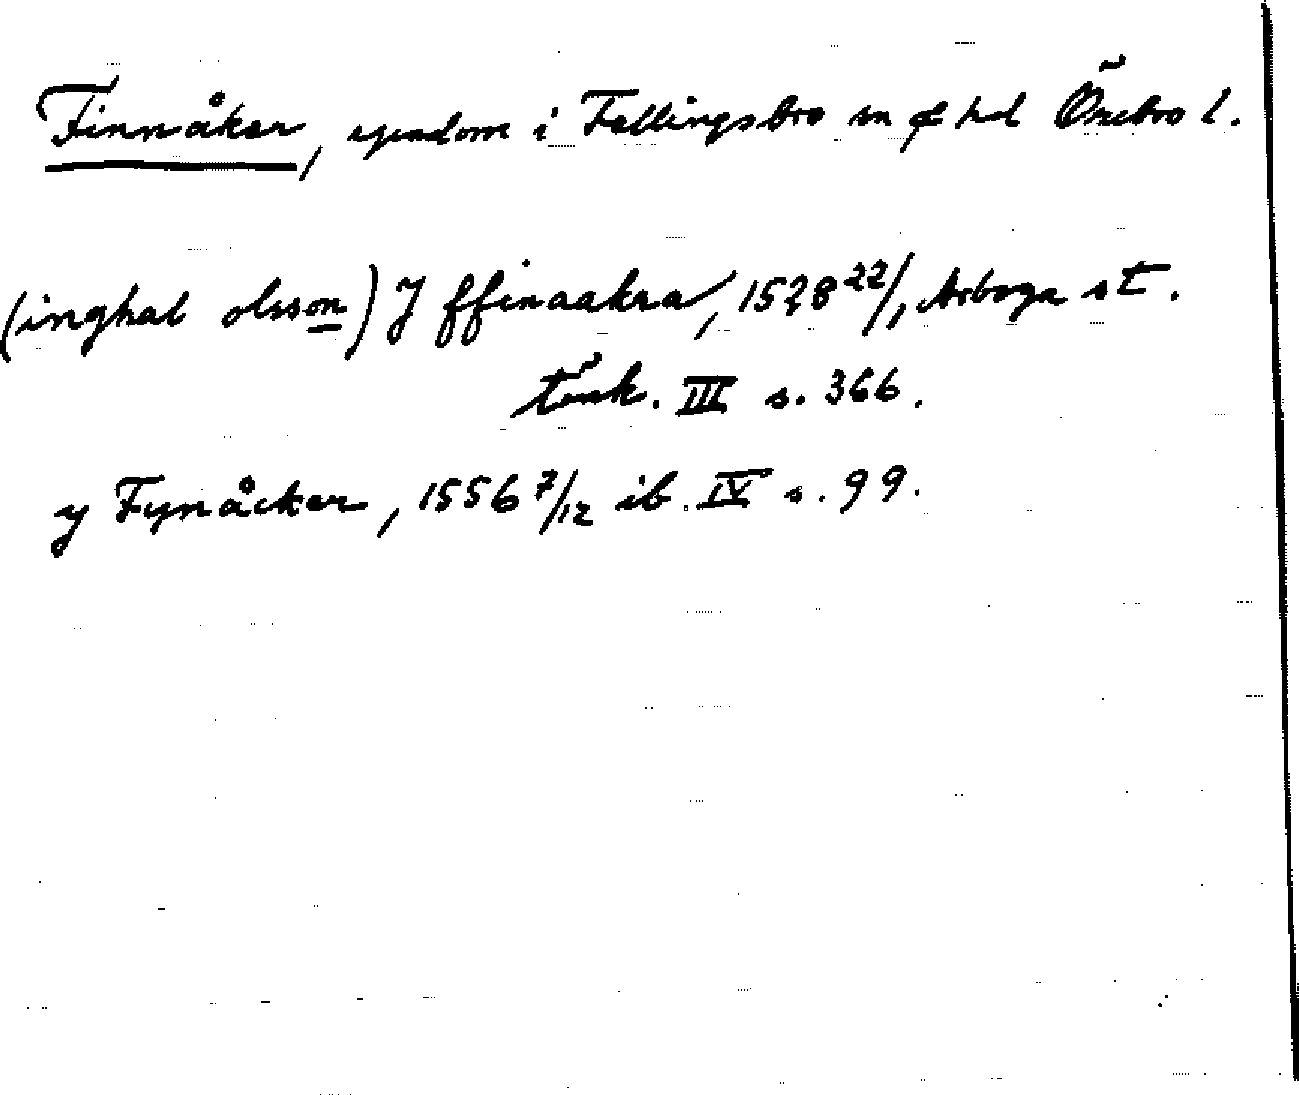 Finnåker, egendom i Fellingsbro sn & hd Örebro l.
(inghal olsson) J ffinaakra, 1528 22/1, Arboga st.
tänk. III s. 366.
y Fynåcker, 1556 7/12 ib. IV s. 99.